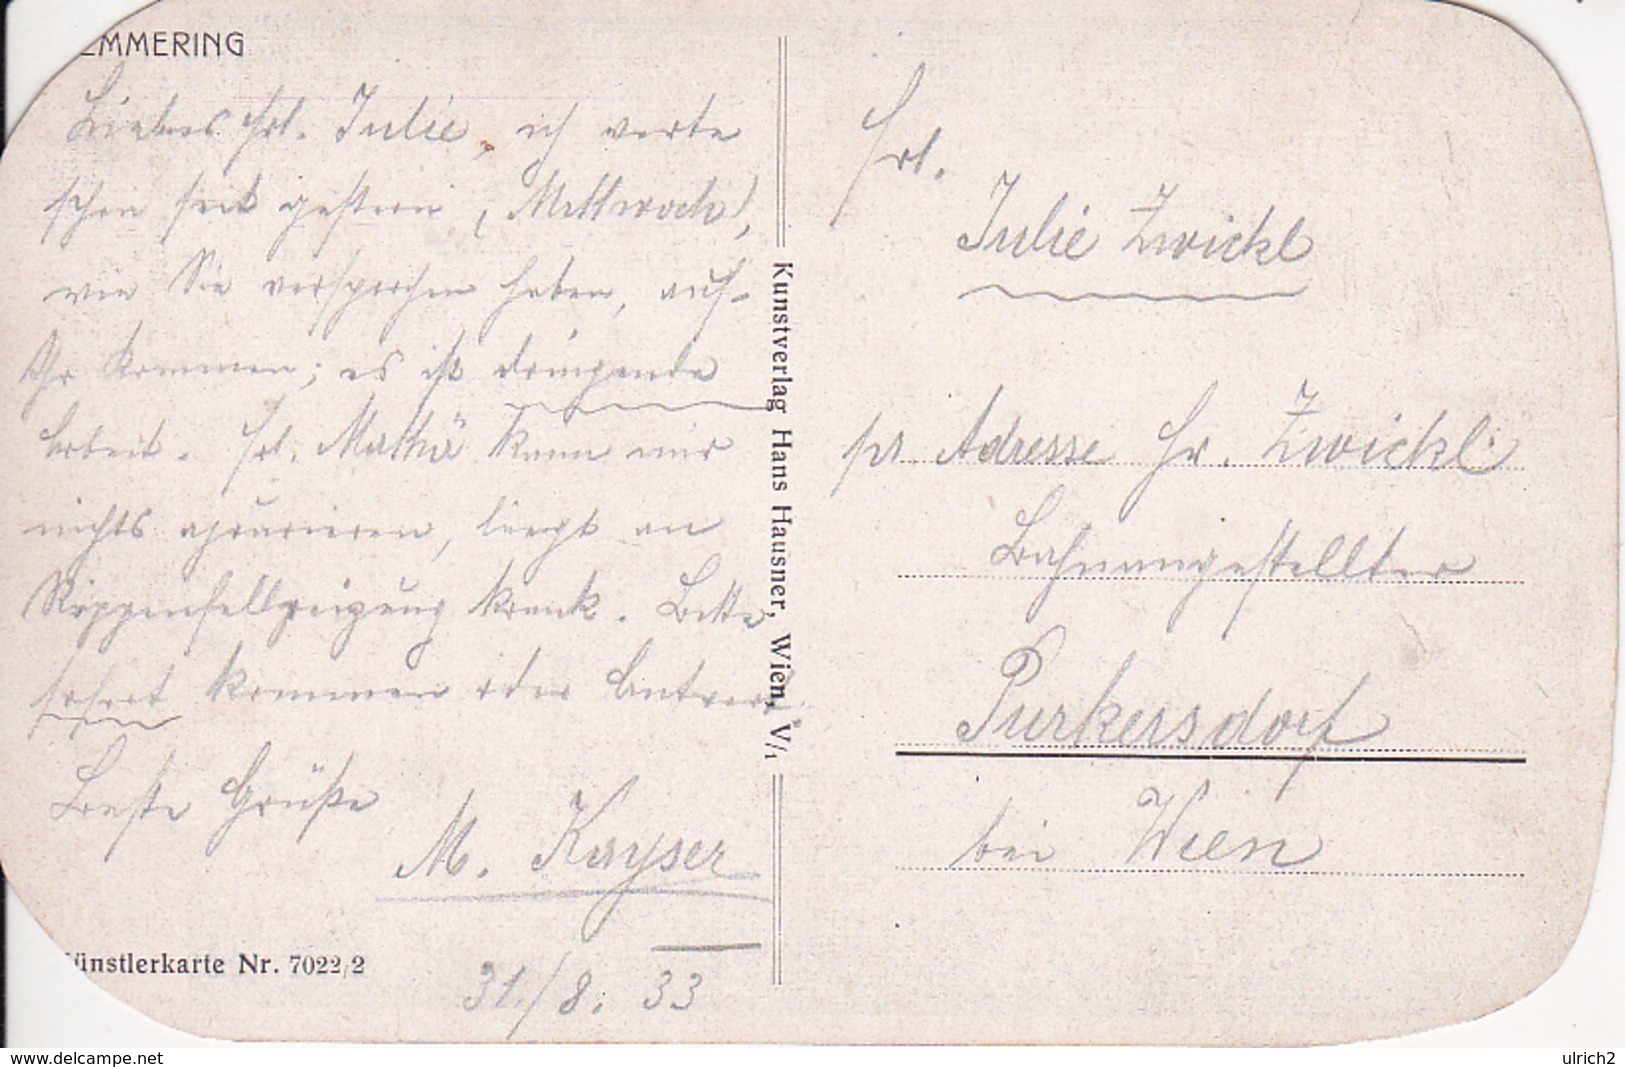 EMMERING
Liebes Frl. Julie, ich warte
schon seit gestern, (Mittwoch),
wie Sie versprochen haben, auf
Ihr Kommen; es ist dringende
Arbeit. Frl. Mathä kann mir
nichts, liegt an
Rippenfellreizung krank. Bitte
sofort kommen oder Antwort
Beste Grüße
M. Kayser
31./8. 33
ünstlerkarte Nr. 7022/2
Kunstverlag Hans Hausner, Wien, V/1
Frl.
Julie Zwickl
pr Adresse Hr. Zwickl
Bahnangestellter
Purkersdorf
bei Wien
www.delcampe.net
ulrich2